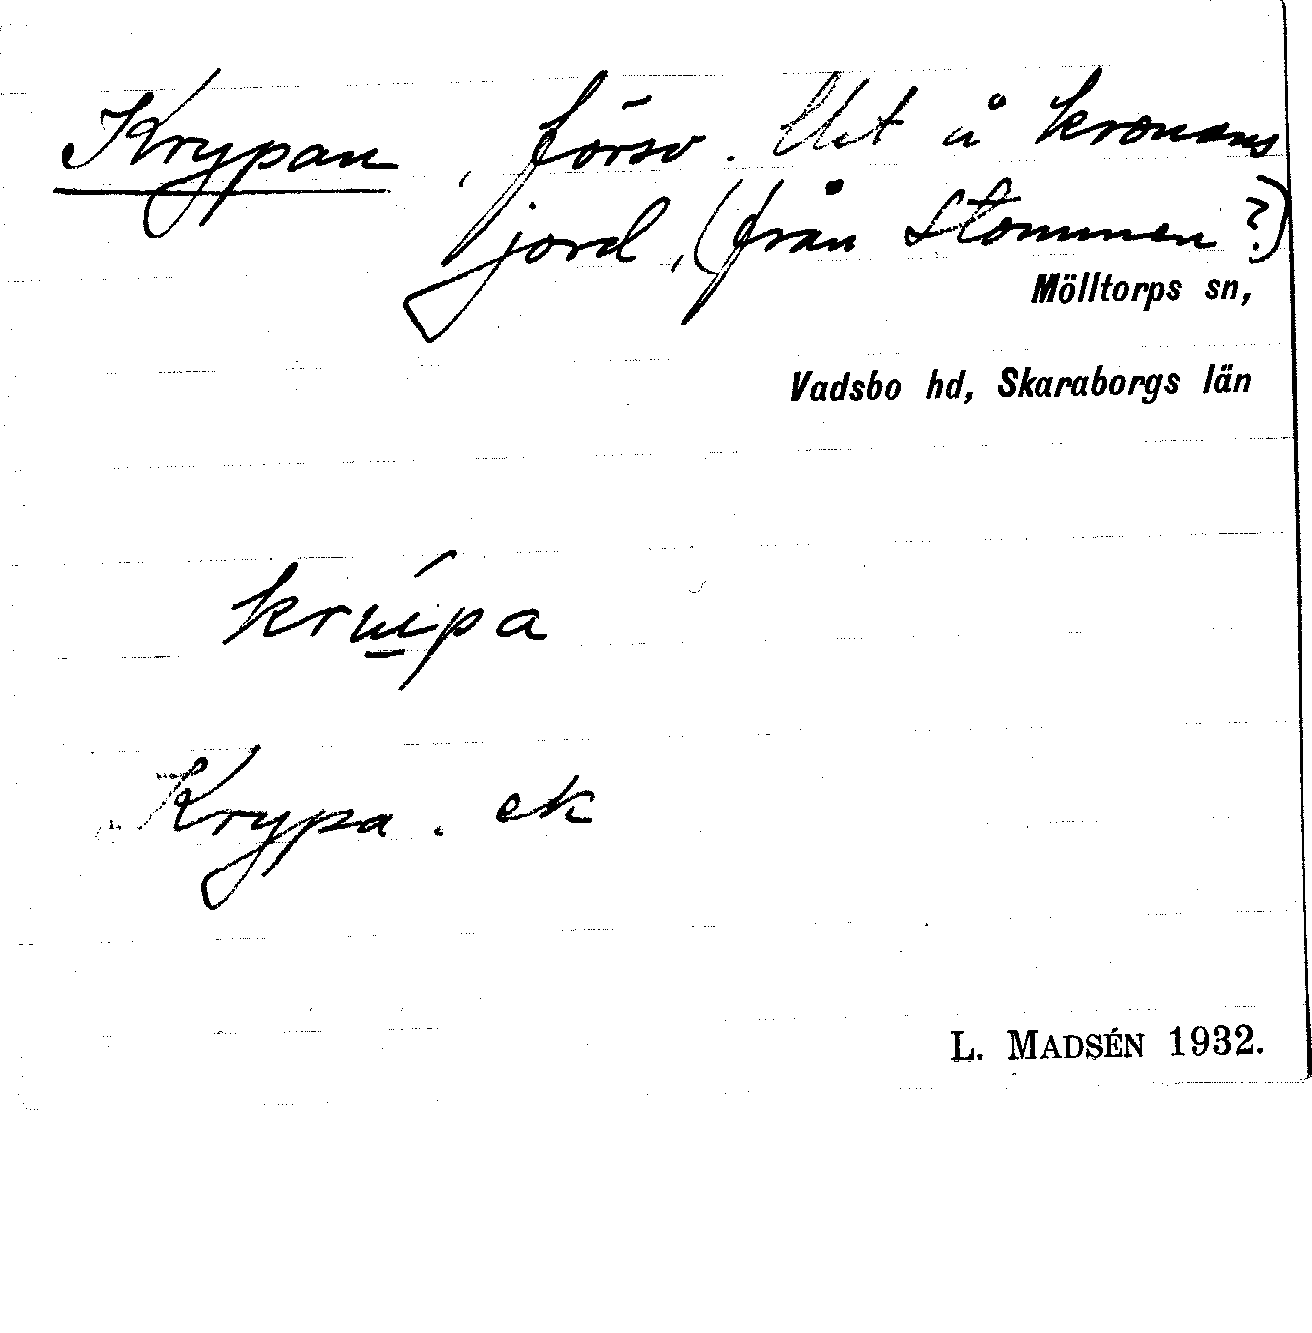 Krypan, försv. lht å kronans
jord, (från Stommen?)
Mölltorps sn,
Vadsbo hd, Skaraborgs län
krípa
Krypa. ek
L. MADSÉN 1932.